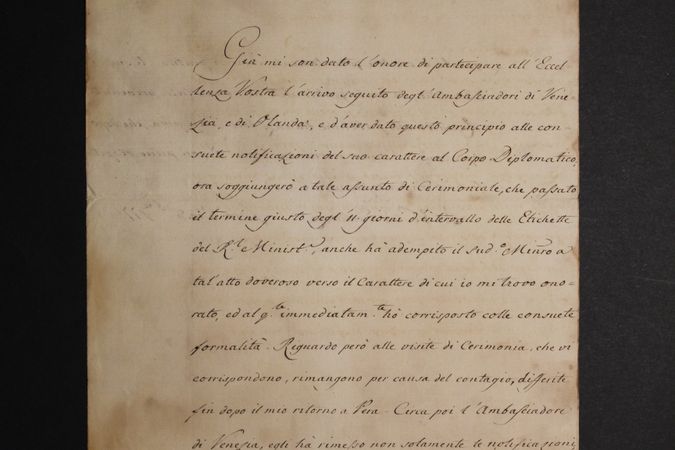 Già mi son dato l'onore di partecipare all'Eccel
lenza Vostra l'arrivo seguito degl'Ambasciadori di Vene-
zia, e di Olanda, e d'aver dato questi principio alle con-
suete notificazioni del suo carattere al Corpo Diplomatico,
ora soggiungerò a tale assunto di Cerimoniale, che passato
il termine giusto degl' 11 giorni d'intervallo delle Etichette
del R.l Minist.o, anche hà adempito il sud.o Minro a
tal'atto doveroso verso il Carattere di cui io mi trovo ono-
rato, ed al q.le immediatam.te hò corrisposto colle consuete
formalità. Riguardo però alle visite di Cerimonia, che vi
corrispondono, rimangono per causa del contagio, differite
fin dopo il mio ritorno a Pera. Circa poi l'Ambasciadore
di Venezia, egli hà rimesso non solamente le notificazioni